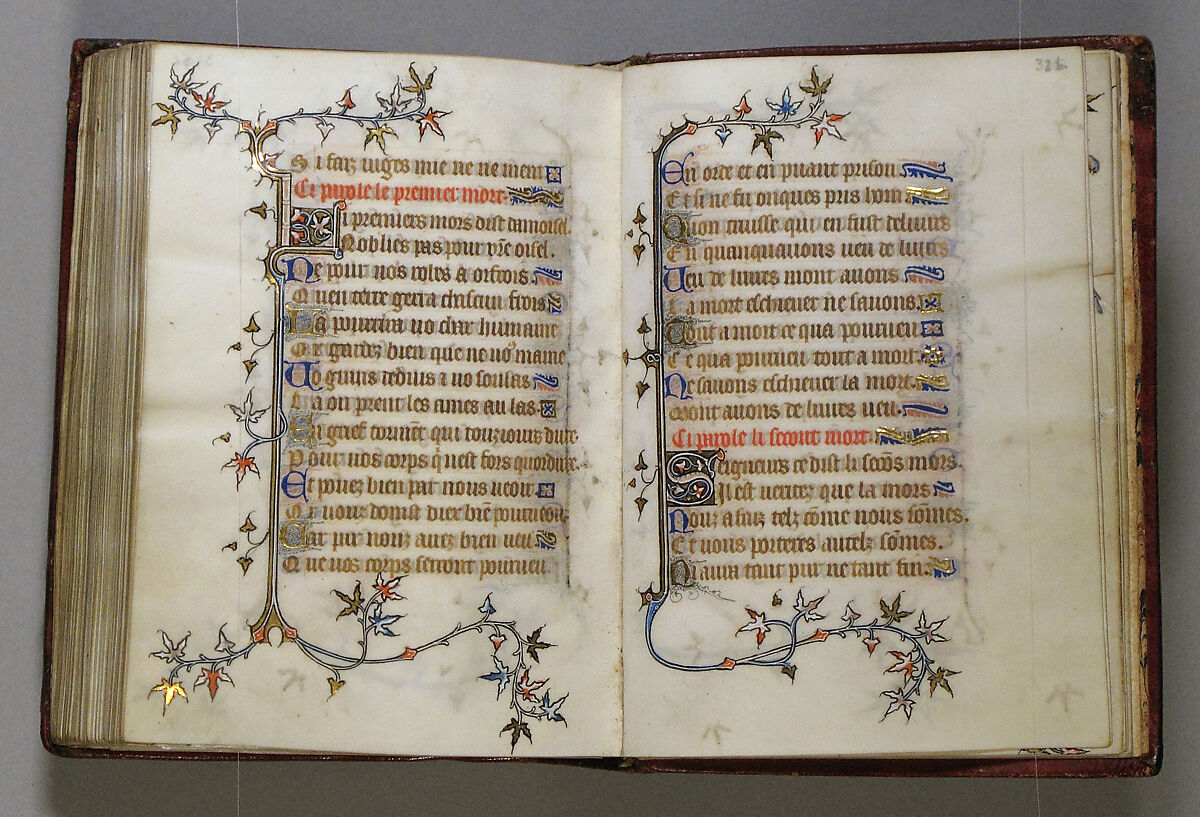 Si faiz iuges mie ne ne ment
Ci parole le premier mort.
Li premiers mors dist damoisel
Noblies pas pour vr̄e oisel.
Ne pour vos robes a orfrois
Quen terre gerra chascun frois
La pourrira vo char humaine
Or gardez bien que ne vo9 maine
Vo
dedius ⁊ vo soulas
La ou prent les ames au las
En grief tormēt qui touziours dure.
Pour vos corps q̄ nest fors quordure.
Et pouez bien par nous veoir
Or vous doinst diex biē pourueoir
Car par nouz auez bien veu
Que vos corps seront pourueu
326.
En orde et en puant prison.
Et si ne fu onques pris hom
Quon cuisse qui en fust deliures
En quanquauons veu de liures
Veu de liures mont auons
La mort eschieuer ne sauons
Tout a mort ce qua pourueu
Ce qua pourueu tout a mort.
Ne sauons eschieuer la mort.
Mont auons de liures veu.
Ci parole li secont mort.
Seigneurs ce dist li secōs mors.
Il est veritez que la mors
Nouz a faiz telz cōme nous sōmes.
Et vous porteres autelz sōmes.
Ni aura tant pur ne tant fin.